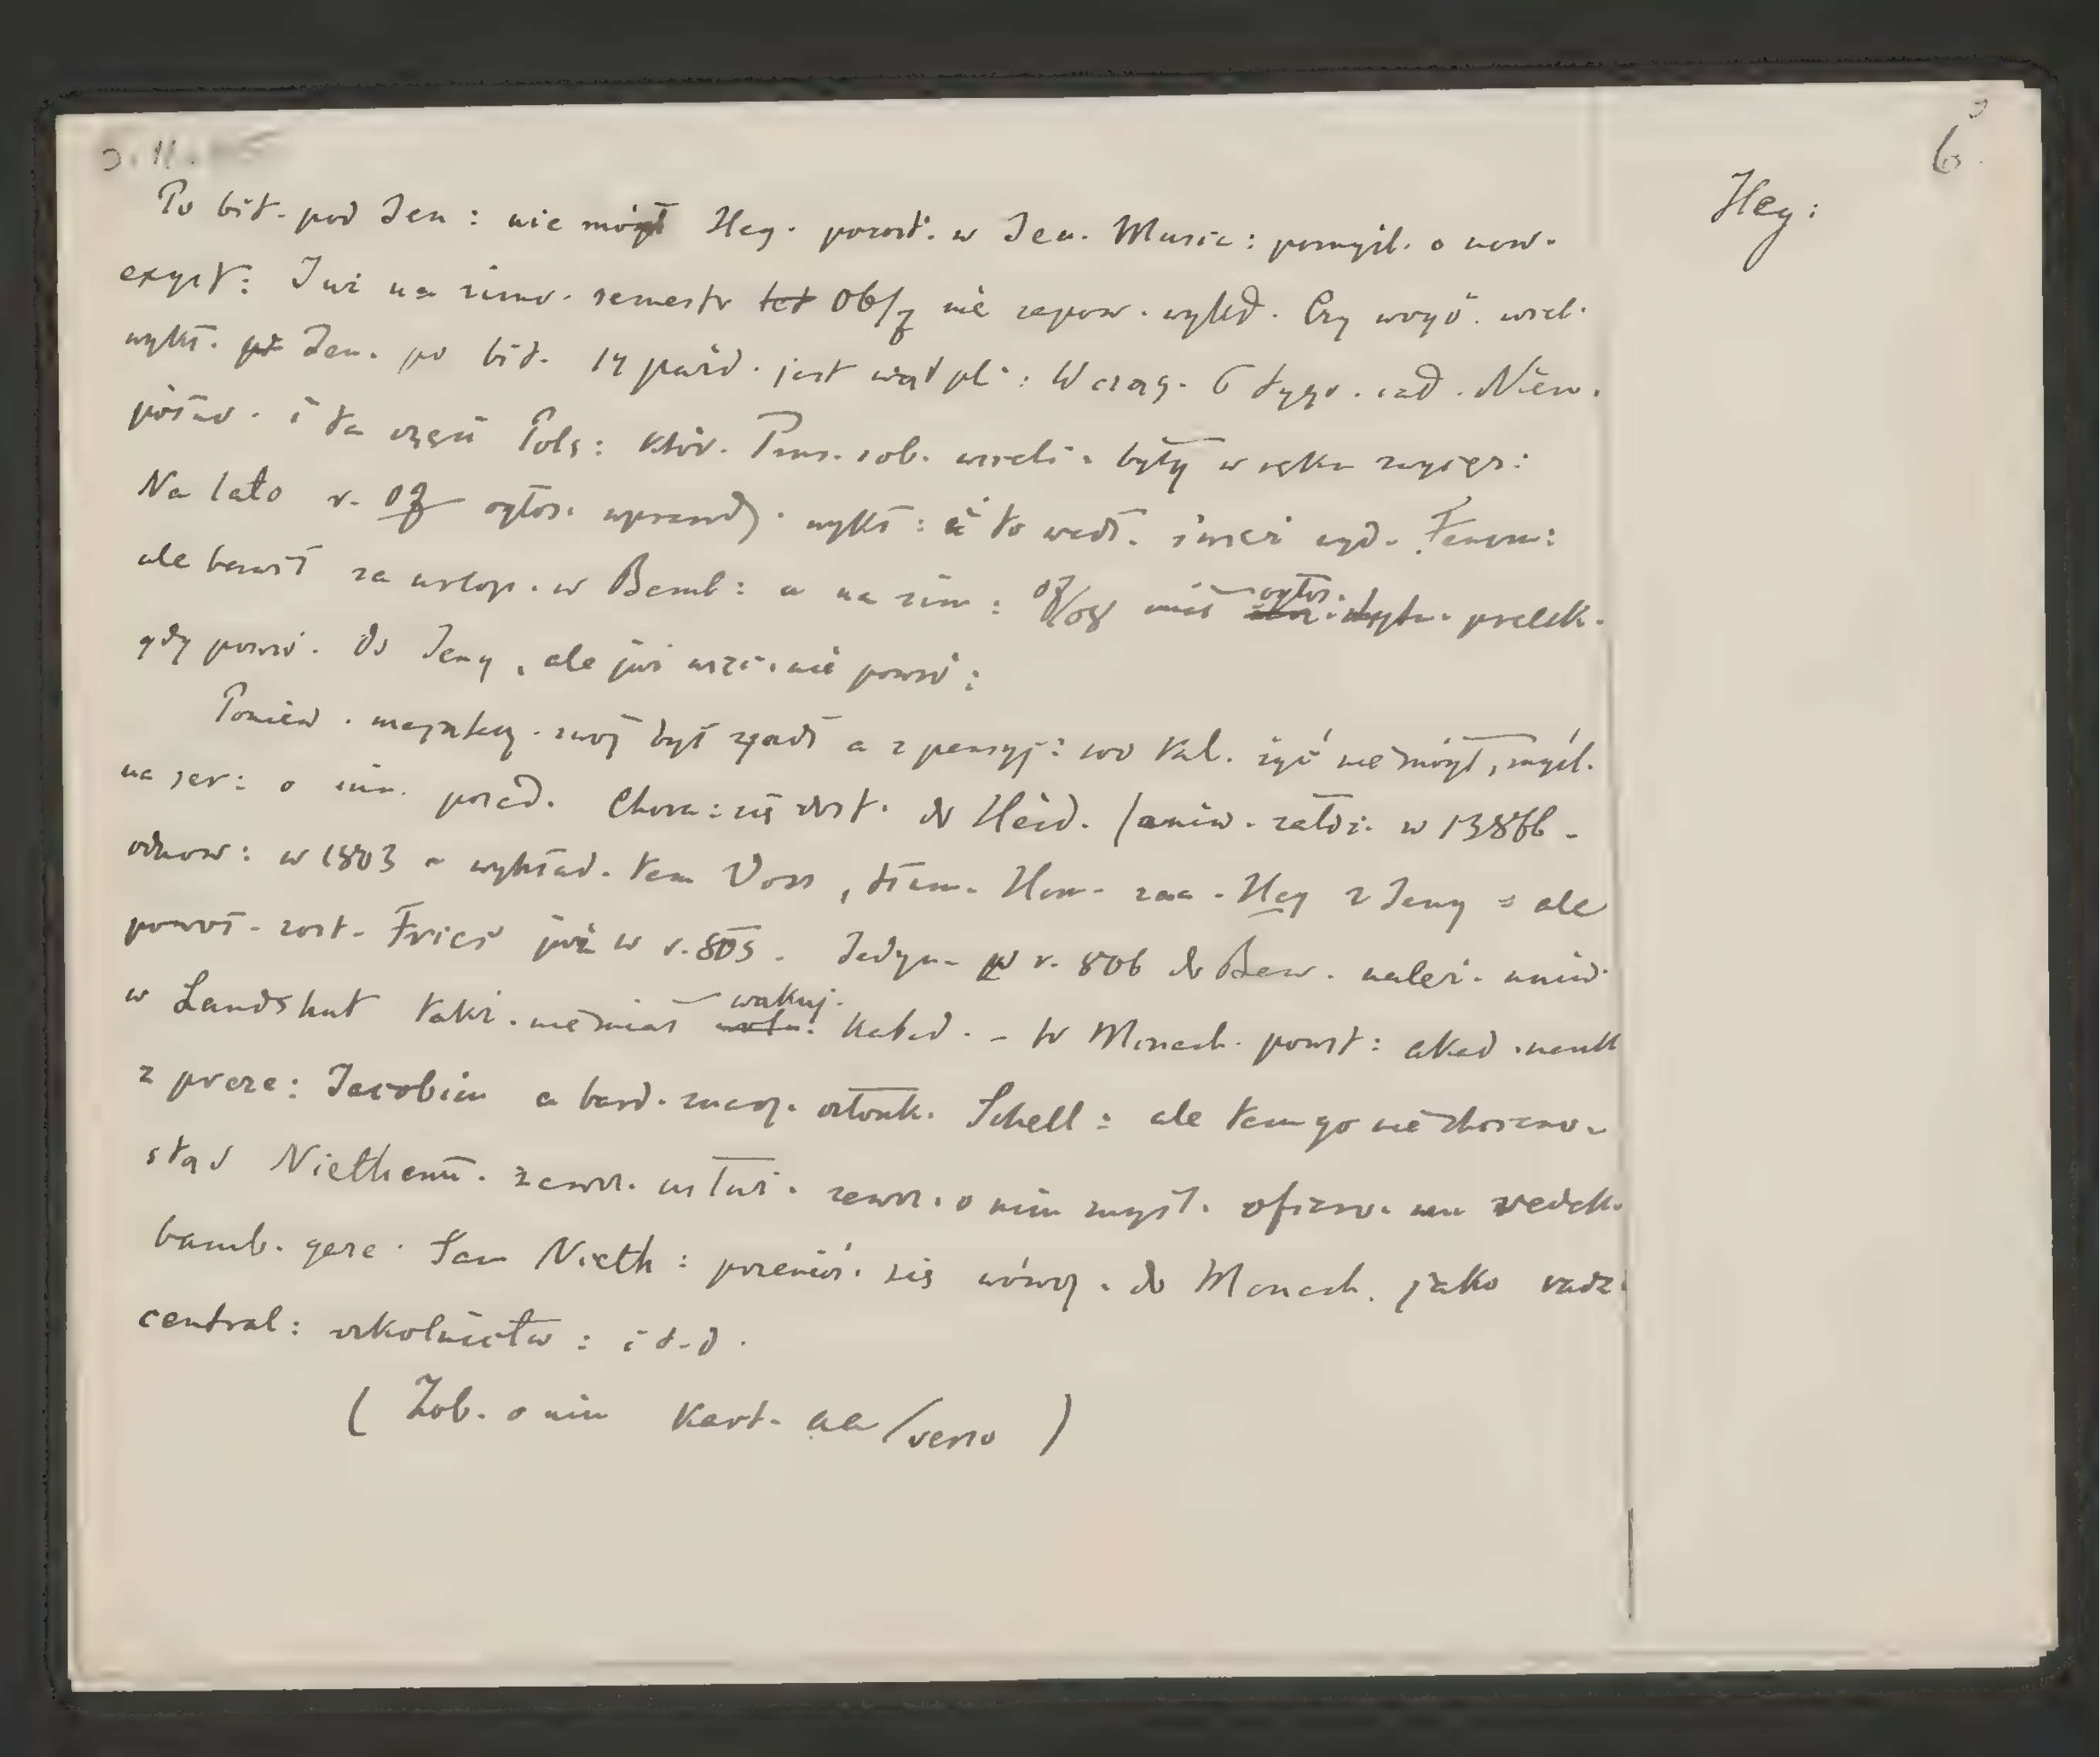 6
Heg:
Po bit. pod Jen: nie mógł Heg. pozost. w Jen. Musia: pomyśl. o now.
exyst: Już na zimo. semestr 06/7 nie zapow. wykł. Czy wogó. wiel.
wykł. Jen. po bit. 14 paźd. jest wątpl: W ciąg. 6 tygo. cał. Niem.
półno. i ta część Pols: któr. Prus. zob. wzieli. były w ręku zwycięs:
Na lato r. 07 ogłos. wprawdz. wykł: i to wedł. świeżo wyd. Fenom:
ale bawił za urlop. w Bamb: a na zim: 07/08 miał ogłos. prelek.
gdy powró. do Jeny, ale już więc. nie powró:
Poniew. majątecz. swój był zjadł a z pensyj: 100 tal. żyć nie mógł, myśl.
na ser: o inn. posad. Chcia: się dost. do Heid. (uniw. założ. w 1386 -
odnow: w 1803 - wykład. tam Voss, tłum. Hom. zna. Heg z Jeny - ale
powoł. zost. Fries już w r. 805. Jedyn. w r. 806 do Baw. należ. uniw.
w Landshut takż. nie miał wakuj. kated. - W Monach. powst: akad. nauk
z preze: Jacobim a bard. znacz. członk. Schell: ale tam go nie chciano.
stąd Niethamm. zawsz. usłuż. zawsz. o nim myśl. ofiaro. mu redak.
bamb. gaze. Sam Nieth: przeniós. się wówcz. do Monach. jako radz.
central: szkolnictw: i t. d.
(Zob. o nim kart. aa/verso)